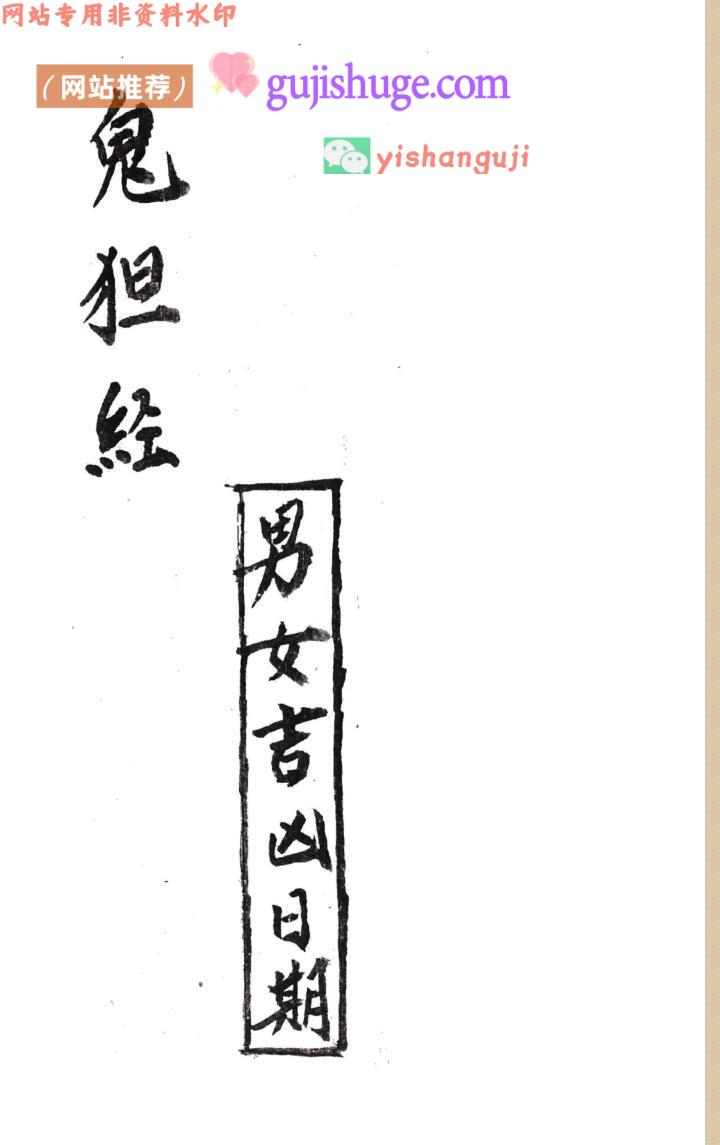 网站专用非资料水印
（网站推荐）
gujishuge.com
yishanguji
鬼狚经
男女吉凶日期